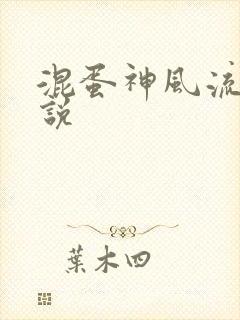 混蛋神風流
說
葉木四